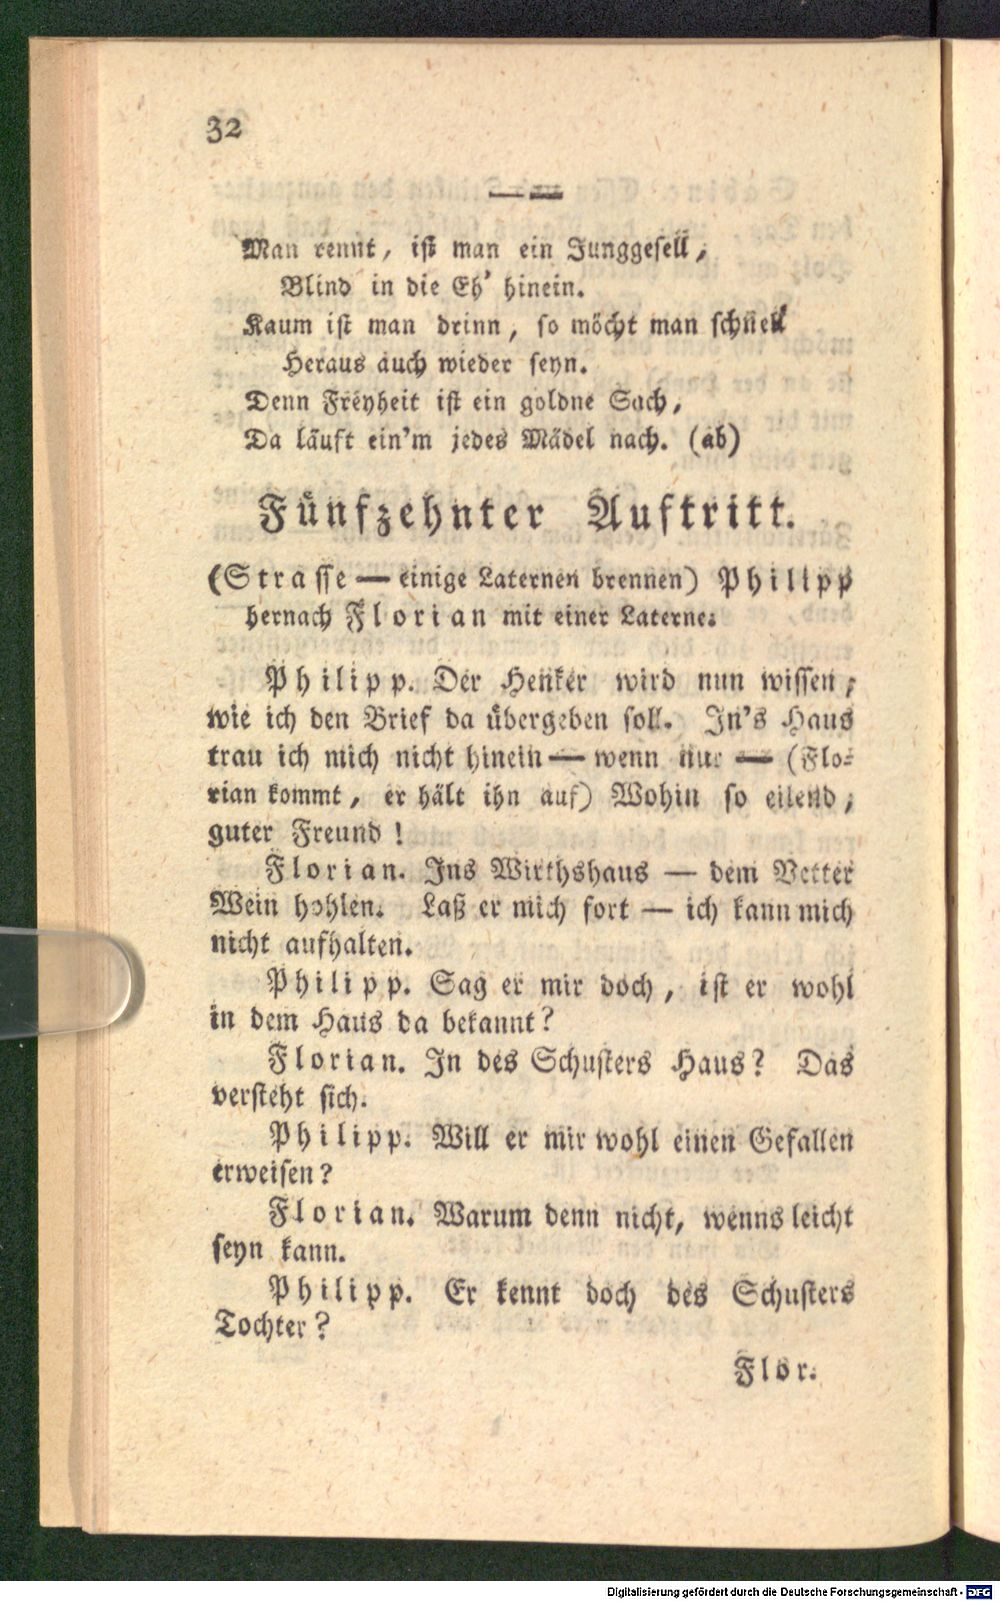 32
Man rennt, ist man ein Junggesell,
Blind in die Eh' hinein.
Kaum ist man drinn, so möcht man schnell
Heraus auch wieder seyn.
Denn Freyheit ist ein goldne Sach,
Da läuft ein'm jedes Mädel nach. (ab)
Fünfzehnter Auftritt.
(Strasse — einige Laternen brennen) Philipp
hernach Florian mit einer Laterne.
Philipp. Der Henker wird nun wissen,
wie ich den Brief da übergeben soll. In's Haus
trau ich mich nicht hinein — wenn nur — (Flo-
rian kommt, er hält ihn auf) Wohin so eilend,
guter Freund!
Florian. Ins Wirthshaus — dem Vetter
Wein hohlen. Laß er mich fort — ich kann mich
nicht aufhalten.
Philipp. Sag er mir doch, ist er wohl
in dem Haus da bekannt?
Florian. In des Schusters Haus? Das
versteht sich.
Philipp. Will er mir wohl einen Gefallen
erweisen?
Florian. Warum denn nicht, wenns leicht
seyn kann.
Philipp. Er kennt doch des Schusters
Tochter?
Flor.
Digitalisierung gefördert durch die Deutsche Forschungsgemeinschaft - DFG